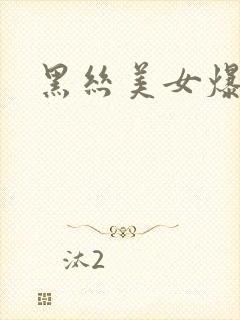 黑丝美女爆
汰2